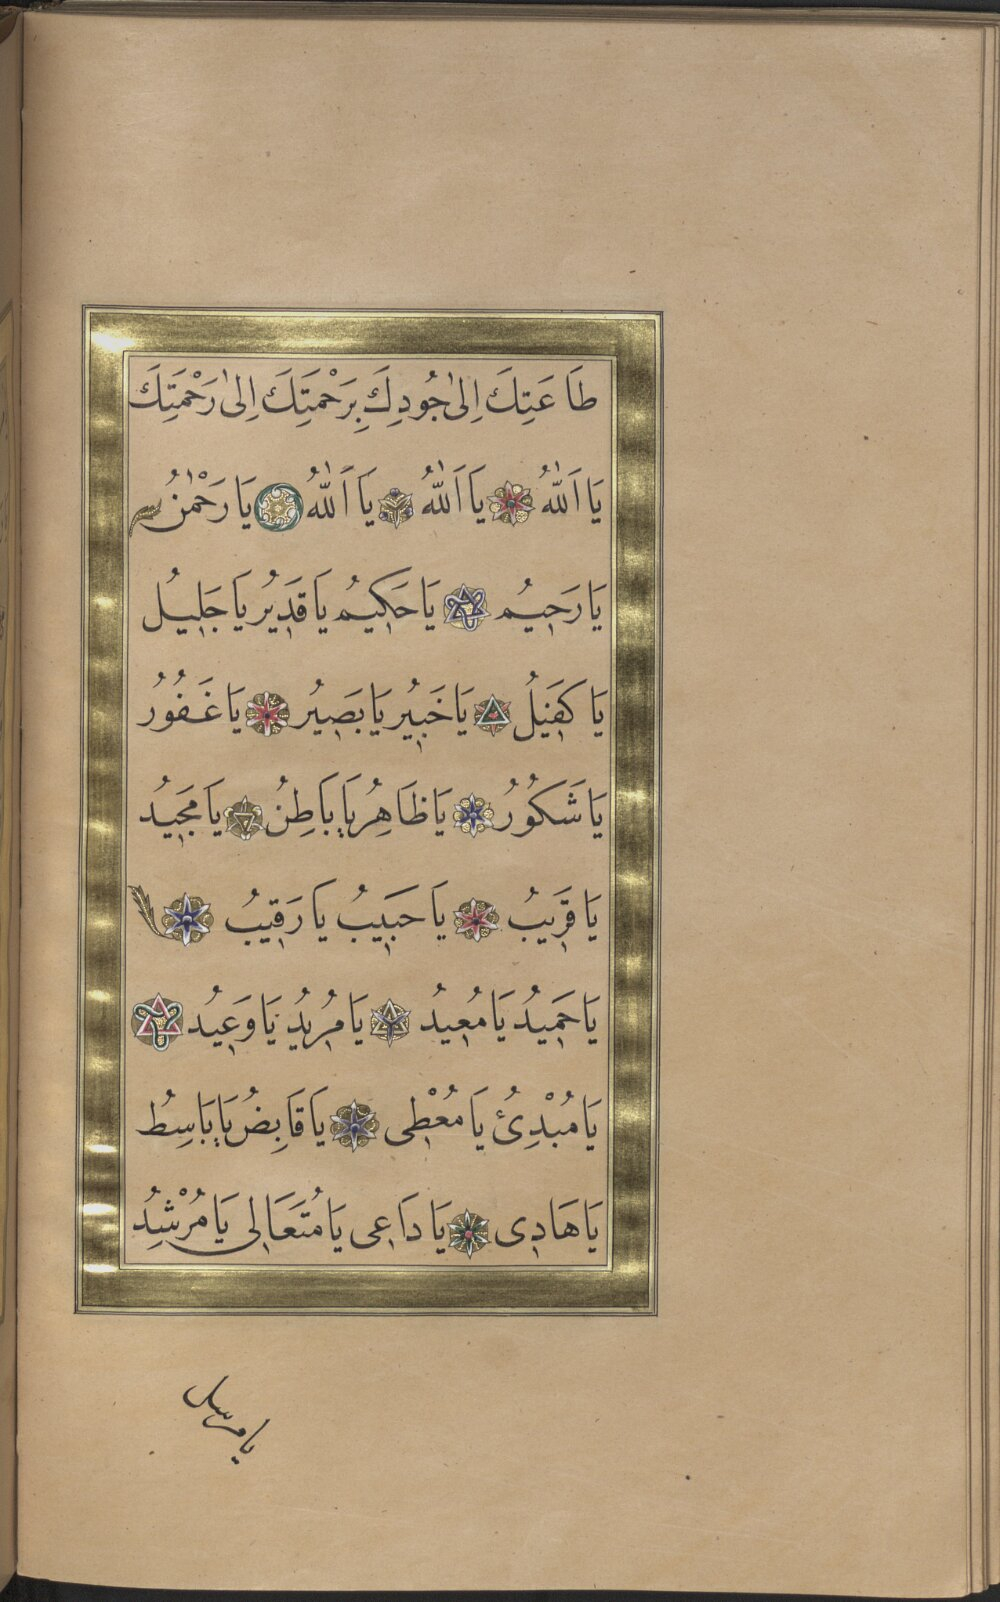 طَاعَتِكَ اِلىٰ جُودِكَ بِرَحْمَتِكَ اِلىٰ رَحْمَتِكَ
يَا اَللّٰهُ يَا اَللّٰهُ يَا اَللّٰهُ يَا رَحْمٰنُ
يَا رَحِيمُ يَا حَكِيمُ يَا قَدِيرُ يَا جَلِيلُ
يَا كَفِيلُ يَا خَبِيرُ يَا بَصِيرُ يَا غَفُورُ
يَا شَكُورُ يَا ظَاهِرُ يَا بَاطِنُ يَا مَجِيدُ
يَا قَرِيبُ يَا حَبِيبُ يَا رَقِيبُ
يَا حَمِيدُ يَا مُعِيدُ يَا مُرِيدُ يَا وَعِيدُ
يَا مُبْدِئُ يَا مُعْطِى يَا قَابِضُ يَا بَاسِطُ
يَا هَادِى يَا دَاعِى يَا مُتَعَالِى يَا مُرْشِدُ
يا مرسل